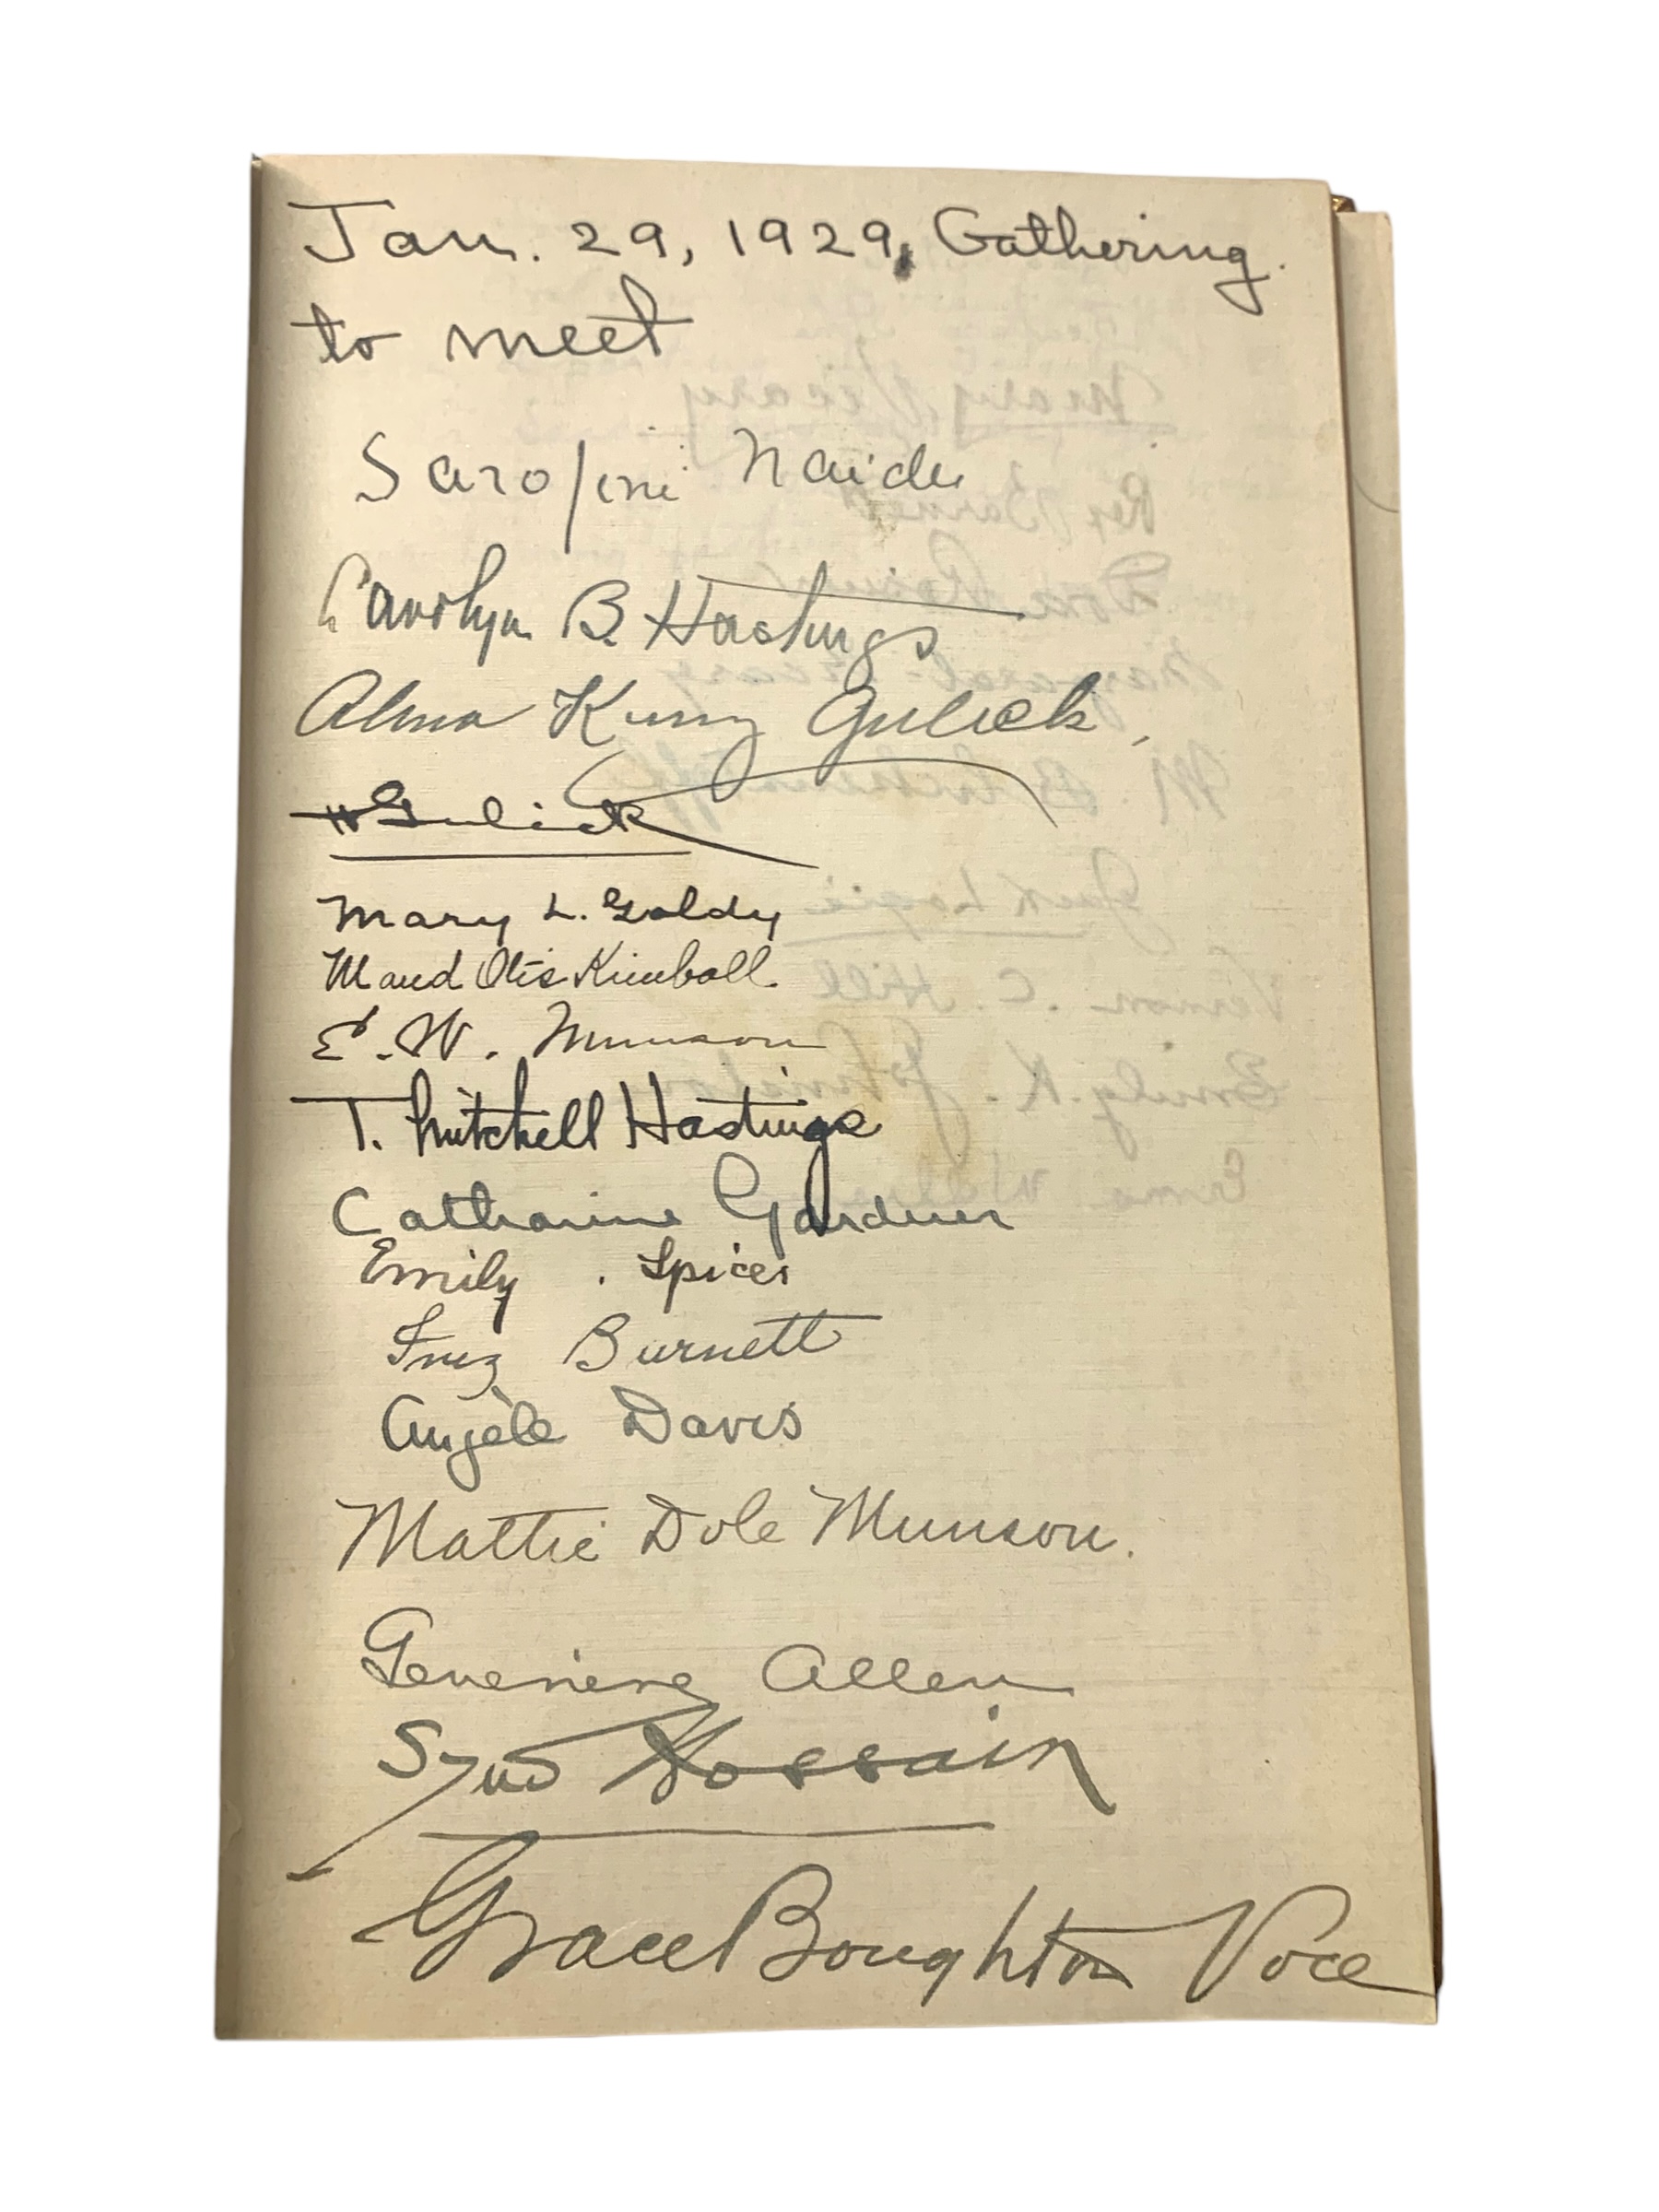 Jan. 29, 1929, Gathering
to meet
Sarojini Naidu
Carolyn B. Hastings
Alma Kunz Gulick,
Gulick
Mary L. Goldy
Maud Otis Kimball.
E. W. Munson
T. Mitchell Hastings
Catharine Gardner
Emily . Spicer
Inez Burnett
Angèle Davis
Mattie Dole Munson.
Genevieve Allen
Syud Hossain
Grace Boughton Voce